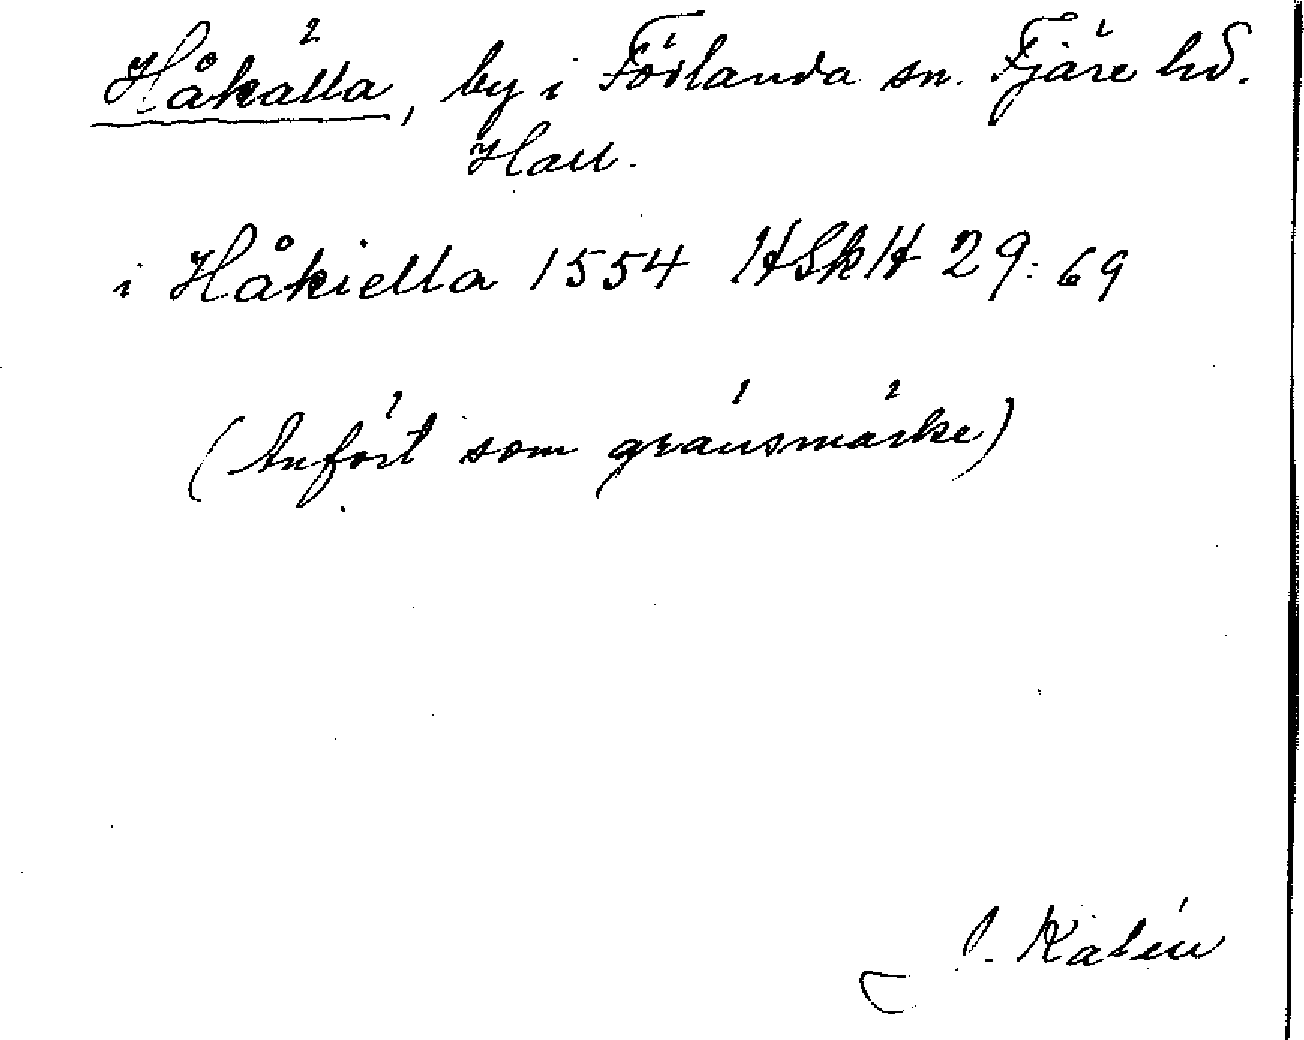 Håkälla, by i Förlanda sn. Fjäre hd.
Hall.
i Håkiella 1554 HSkH 29:69
(Anfört som gränsmärke)
Kalén